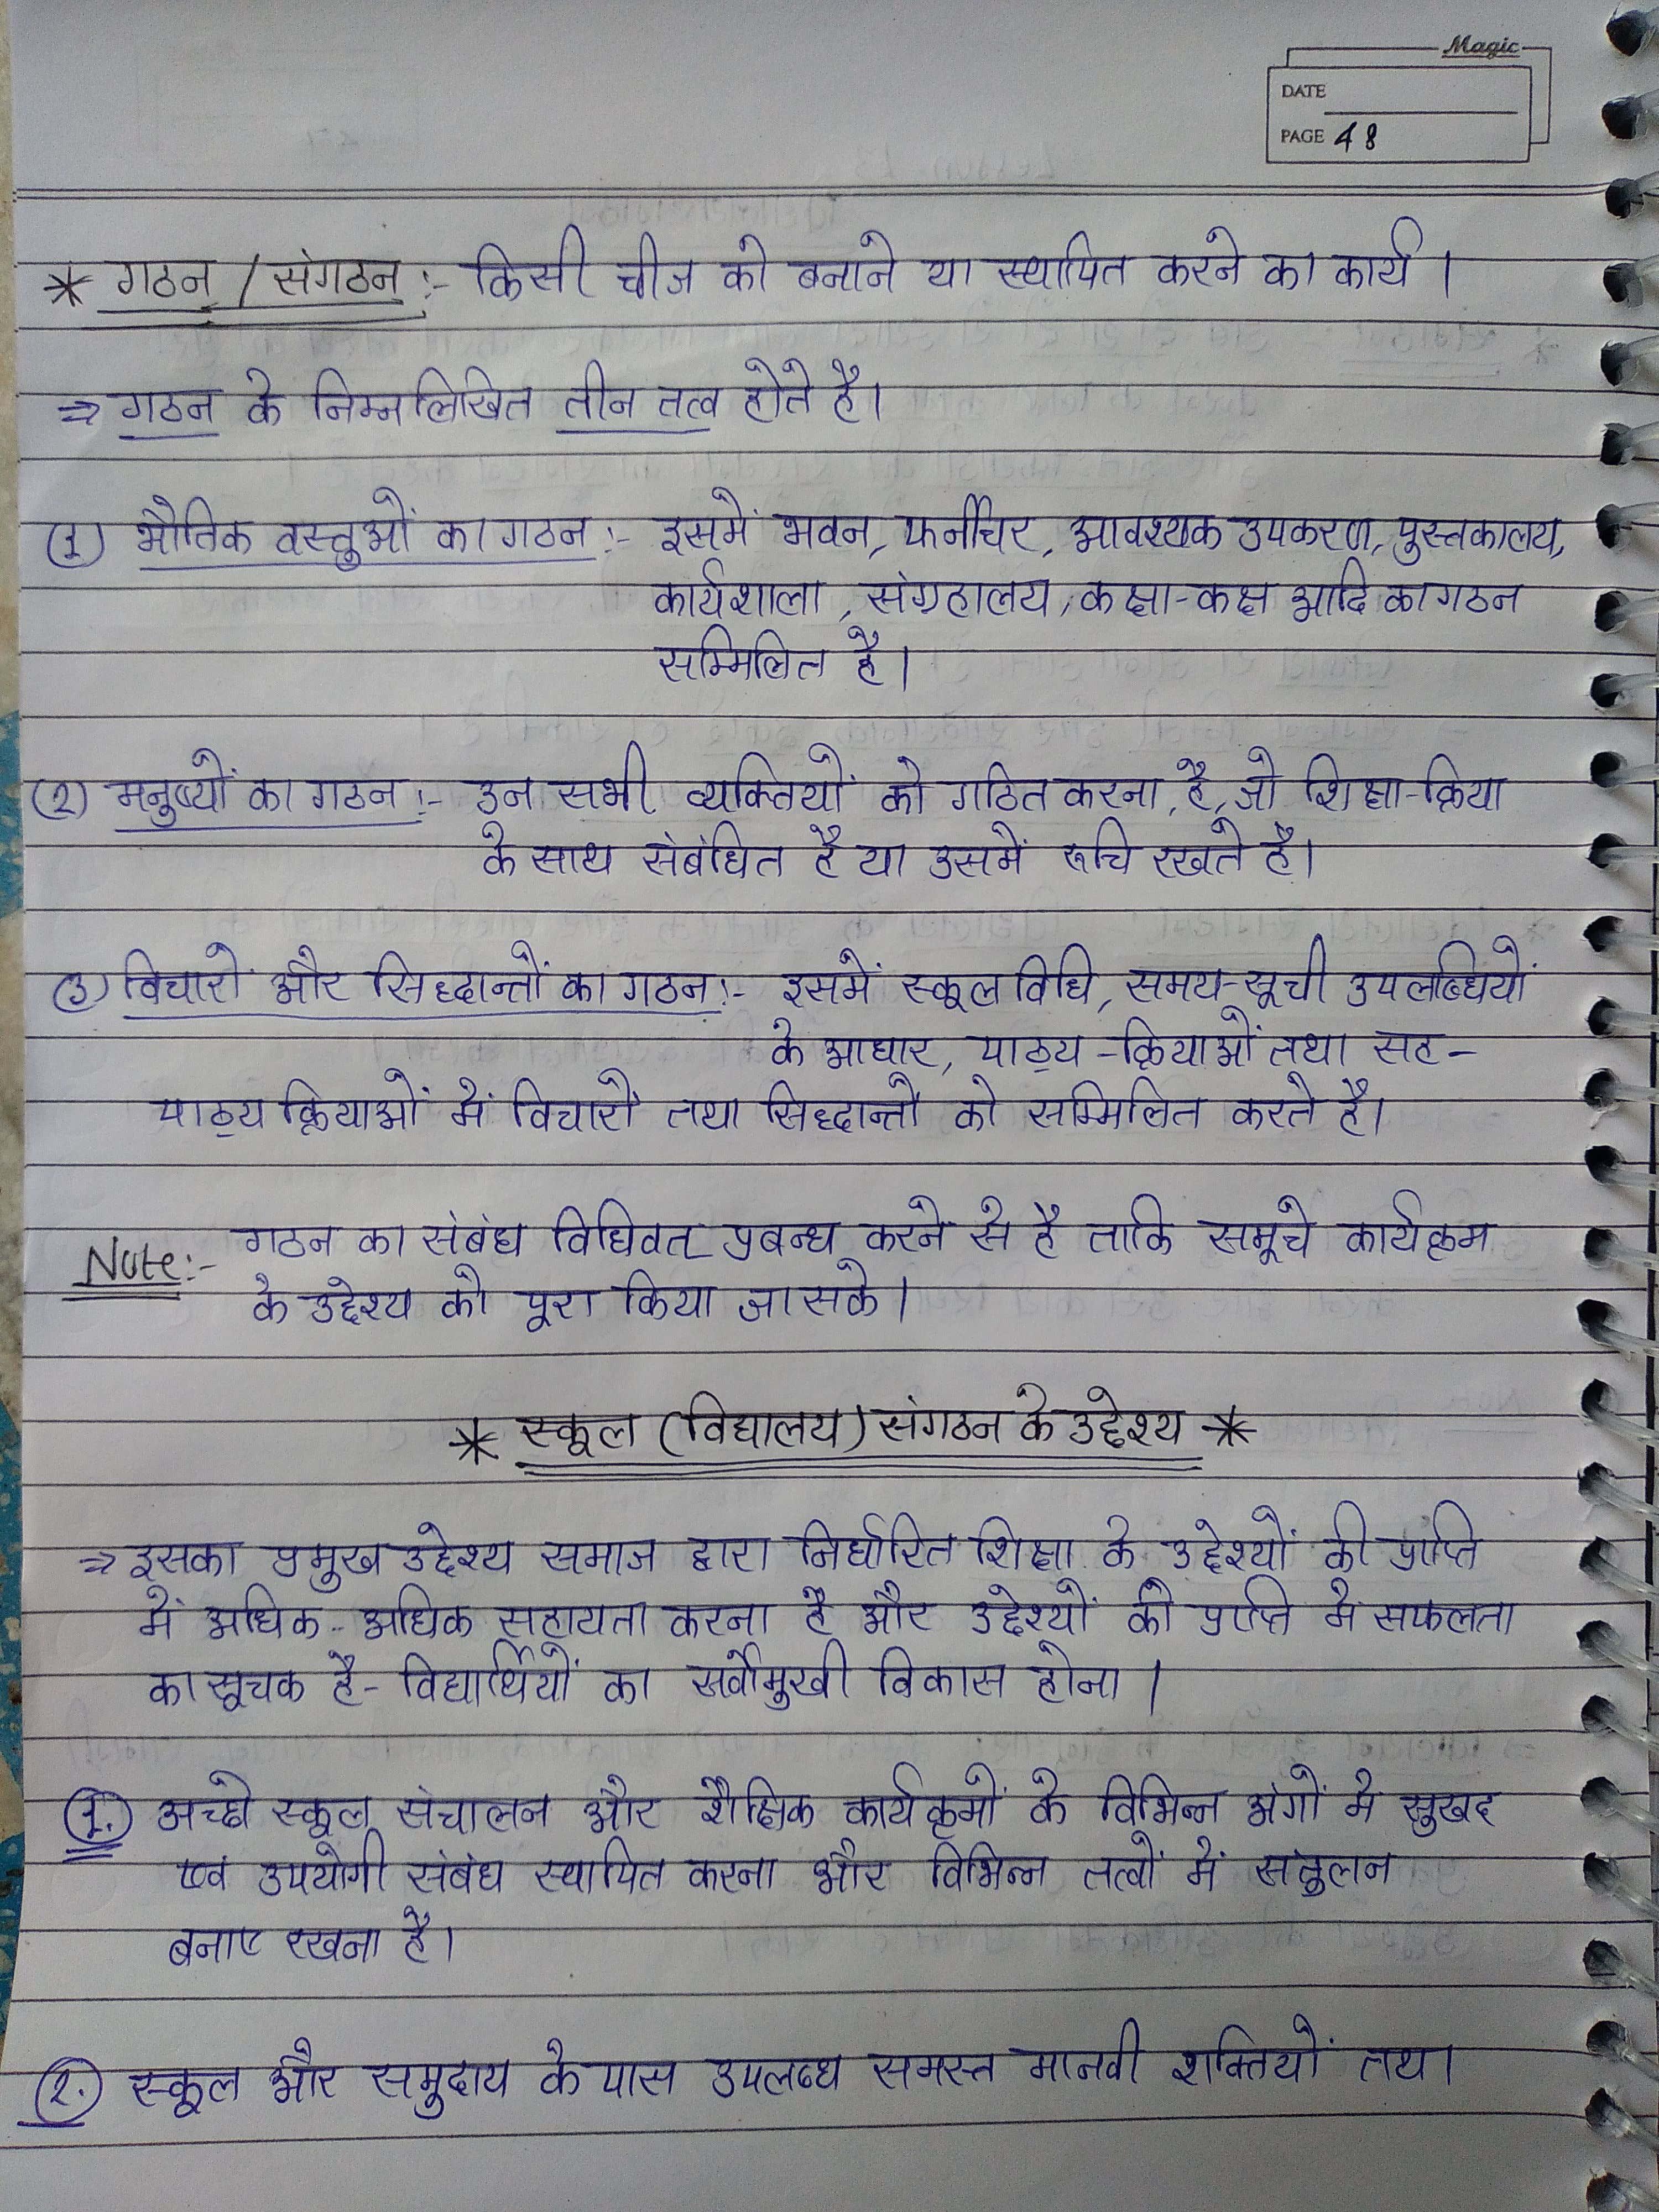 Magic
DATE
PAGE 48
* गठन / संगठन :- किसी चीज को बनाने या स्थापित करने का कार्य ।
⇒ गठन के निम्नलिखित तीन तत्व होते है।
(1) भौतिक वस्तुओं का गठन :- इसमें भवन, फर्नीचर, आवश्यक उपकरण, पुस्तकालय,
कार्यशाला, संग्रहालय, कक्षा-कक्ष आदि का गठन
सम्मिलित है।
(2) मनुष्यों का गठन :- उन सभी व्यक्तियों को गठित करना है, जो शिक्षा-क्रिया
के साथ संबंधित है या उसमें रूचि रखते है।
(3) विचारो और सिद्धान्तों का गठन :- इसमें स्कूल विधि, समय-सूची उपलब्धियों
के आधार, पाठ्य-क्रियाओं तथा सह-
पाठ्य क्रियाओं में विचारों तथा सिद्धान्तो को सम्मिलित करते है।
Note:- गठन का संबंध विधिवत् प्रबन्ध करने से है ताकि समूचे कार्यक्रम
के उद्देश्य को पूरा किया जा सके।
* स्कूल (विद्यालय) संगठन के उद्देश्य *
⇒ इसका प्रमुख उद्देश्य समाज द्वारा निर्धारित शिक्षा के उद्देश्यों की प्राप्ति
में अधिक-अधिक सहायता करना है और उद्देश्यों की प्राप्ति मे सफलता
का सूचक है- विद्यार्थियों का सर्वोमुखी विकास होना ।
1. अच्छे स्कूल संचालन और शैक्षिक कार्यक्रमों के विभिन्न अंगों मे सुखद
एवं उपयोगी संबंध स्थापित करना और विभिन्न तत्वों में सतुलन
बनाए रखना है।
2. स्कूल और समुदाय के पास उपलब्ध समस्त मानवी शक्तियों तथा